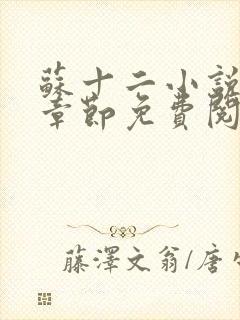 蘇十二小說
章節免費閱
藤澤文翁/唐